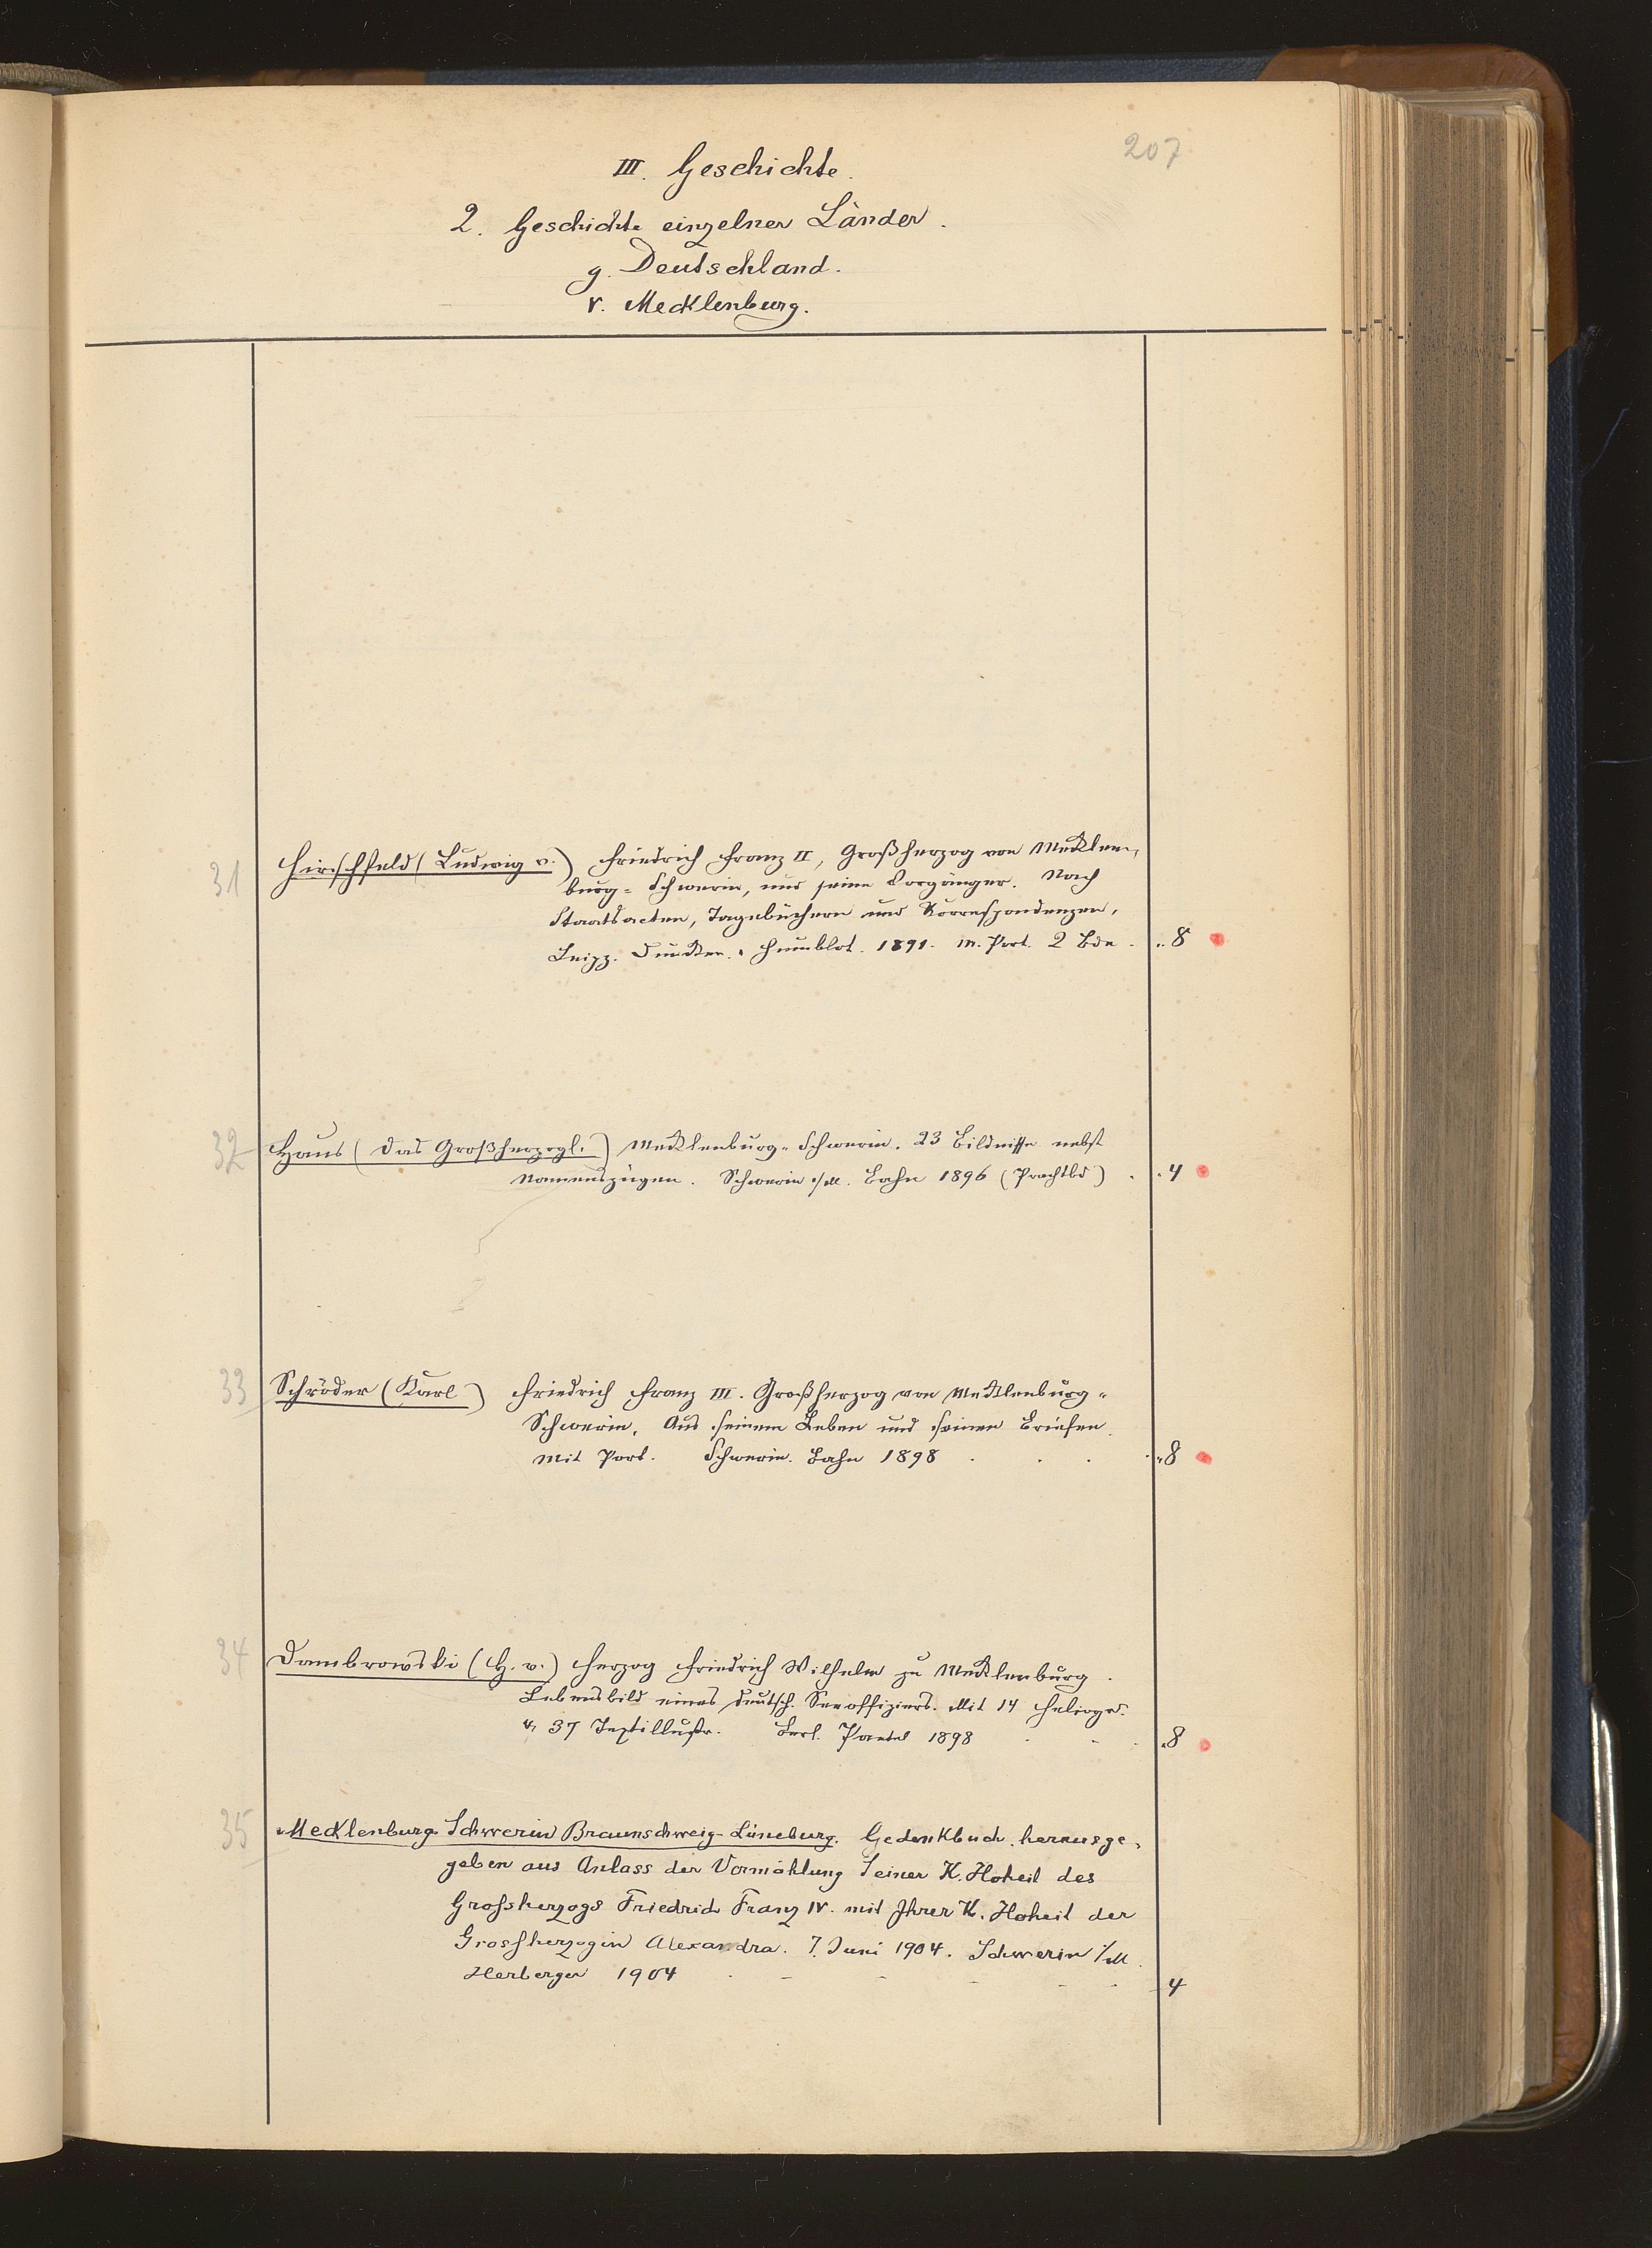 207
III. Geschichte.
2. Geschichte einzelner Länder.
g. Deutschland.
r. Mecklenburg.
31 Hirschfeld (Ludwig v.) Friedrich Franz II, Großherzog von Mecklen-
burg-Schwerin, und seine Vorgänger. Nach
Staatsacten, Tagebüchern und Korrespondenzen,
Leipz. Duncker. Humblot. 1891. m. Port. 2 Bde. 8
32 Haus (Das Großherzogl.) Mecklenburg-Schwerin. 23 Bildnisse nebst
Namenszügen. Schwerin i/M. Bahn 1896 (Prachtbd) 4
33 Schröder (Karl) Friedrich Franz III. Großherzog von Mecklenburg-
Schwerin. Aus seinem Leben und seinen Briefen.
Mit Port. Schwerin. Bahn 1898 8
34 Dambrowski (H. v.) Herzog Friedrich Wilhelm zu Mecklenburg.
Lebensbild eines deutsch. Seeoffiziers. Mit 14 Heliogr.
u. 37 Textillustr. Berl. Paetel 1898 8
35 Mecklenburg-Schwerin Braunschweig-Lüneburg. Gedenkbuch herausge-
geben aus Anlass der Vermählung Seiner K. Hoheit des
Grossherzogs Friedrich Franz IV. mit Ihrer K. Hoheit der
Grossherzogin Alexandra. 7. Juni 1904. Schwerin i/M.
Herberger 1904 4